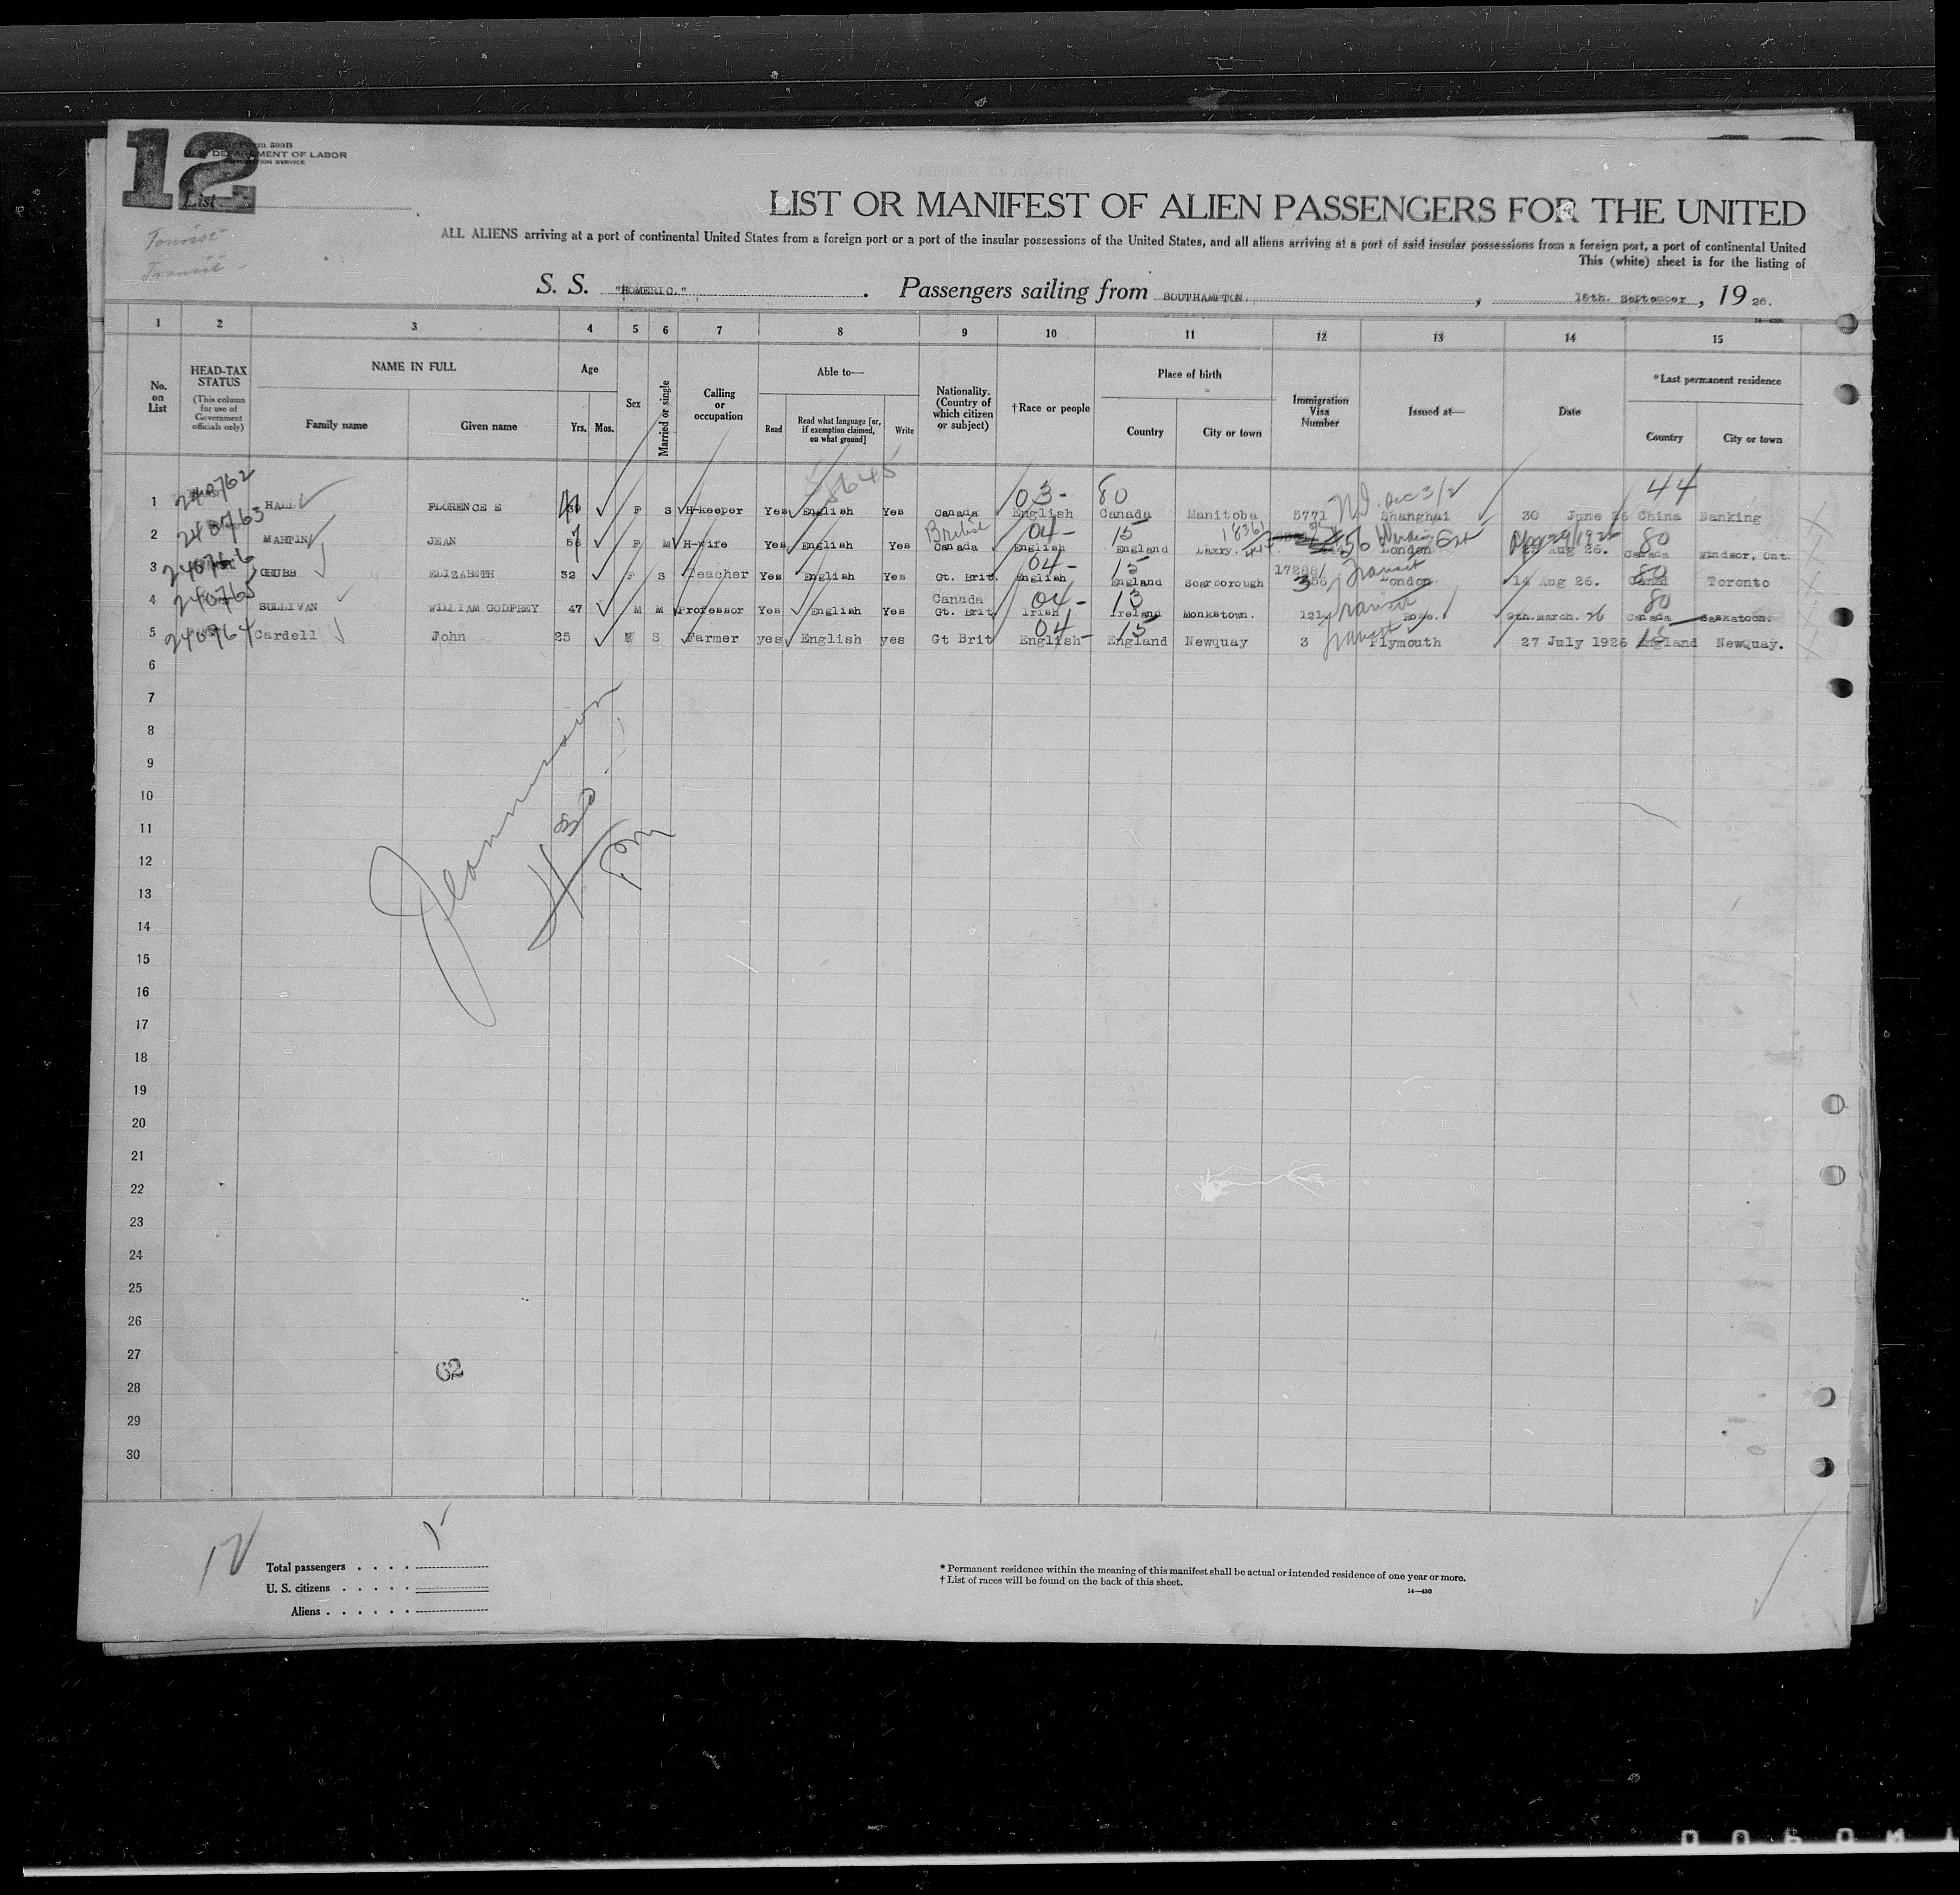 12
Form 500B
DEPARTMENT OF LABOR
List
Tourist
Transit
LIST OR MANIFEST OF ALIEN PASSENGERS FOR THE UNITED
ALL ALIENS arriving at a port of continental United States from a foreign port or a port of the insular possessions of the United States, and all aliens arriving at a port of said insular possessions from a foreign port, a port of continental United
This (white) sheet is for the listing of
S. S. "HOMERIC." . Passengers sailing from SOUTHAMPTON. , 15th. September , 19 26.
1 2 3 4 5 6 7 8 9 10 11 12 13 14 15
No. on List
HEAD-TAX STATUS (This column for use of Government officials only)
NAME IN FULL
Family name Given name
Age
Yrs. Mos.
Sex
Married or single
Calling or occupation
Able to—
Read Read what language [or, if exemption claimed, on what ground] Write
Nationality. (Country of which citizen or subject)
† Race or people
Place of birth
Country City or town
Immigration Visa Number
Issued at—
Date
* Last permanent residence
Country City or town
8645 03- 80 Dec 3/2 44
1 240762 HALL FLORENCE E F S H-keeper Yes English Yes Canada English Canada Manitoba 5771 Shanghai 30 June 26 China Nanking
British 04- 15 18361 80
2 240763 MARTIN JEAN F M H-wife Yes English Yes Canada English England London 25 Aug 26. Canada Windsor, Ont.
04- 15 17288 Transit 80
3 CHUBB ELIZABETH 32 F S Teacher Yes English Yes Gt. Brit. English England Scarborough London 14 Aug 26. Toronto
Canada 04- 13 Transit 80
4 240765 SULLIVAN WILLIAM GODFREY 47 M M Professor Yes English Yes Gt. Brit. Irish Ireland Monkstown. Rome. 9th. March. 26 Canada Saskatoon.
04- 15 Transit 15
5 240764 Cardell John 25 S Farmer yes English yes Gt Brit English England Newquay 3 Plymouth 27 July 1926 England Newquay.
6
7
8
9
10
11
12
13
14
15
16
17
18
19
20
21
22
23
24
25
26
27
28
29
30
4 30 Pm
62
12
Total passengers . . . .
U. S. citizens . . . . .
Aliens . . . . . .
* Permanent residence within the meaning of this manifest shall be actual or intended residence of one year or more.
† List of races will be found on the back of this sheet.
14—430